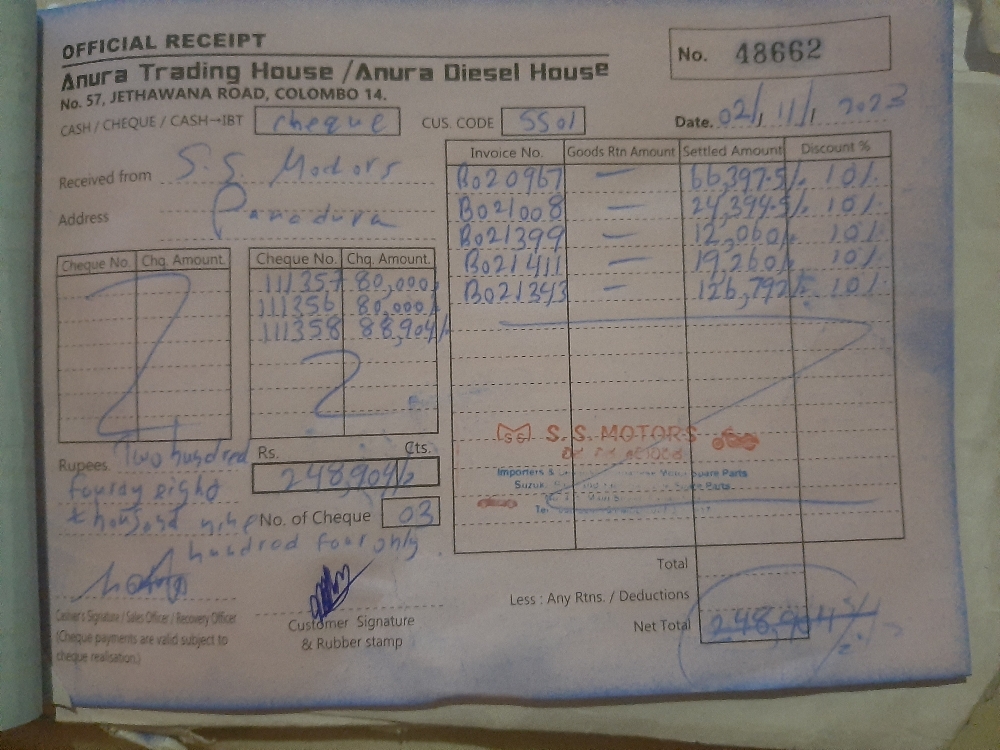 OFFICIAL RECEIPT
No. 48662
Anura Trading House /Anura Diesel House
No. 57, JETHAWANA ROAD, COLOMBO 14.
CASH / CHEQUE / CASH→IBT cheque CUS. CODE SS01 Date. 02/11/2023
Received from S.S. Motors
Address Panadura
Invoice No. Goods Rtn Amount Settled Amount Discount %
B020967 — 66,397.5/- 10%
B021008 — 24,394.5/- 10%
B021399 — 12,060/- 10%
B021411 — 19,260/- 10%
B021343 — 126,792/- 10%
Cheque No. Chq. Amount. Cheque No. Chq. Amount.
111357 80,000/
111356 80,000/
111358 88,904/-
S.S. MOTORS
Importers & Spare Parts
Suzuk
Rupees. Two hundred
fourty eight
thousand nine
hundred four only
Rs. Cts.
248,904/=
No. of Cheque 03
Total
Less : Any Rtns. / Deductions
Net Total 248,904
Cashier's Signature / Sales Officer / Recovery Officer
(Cheque payments are valid subject to
cheque realisation.)
Customer Signature
& Rubber stamp